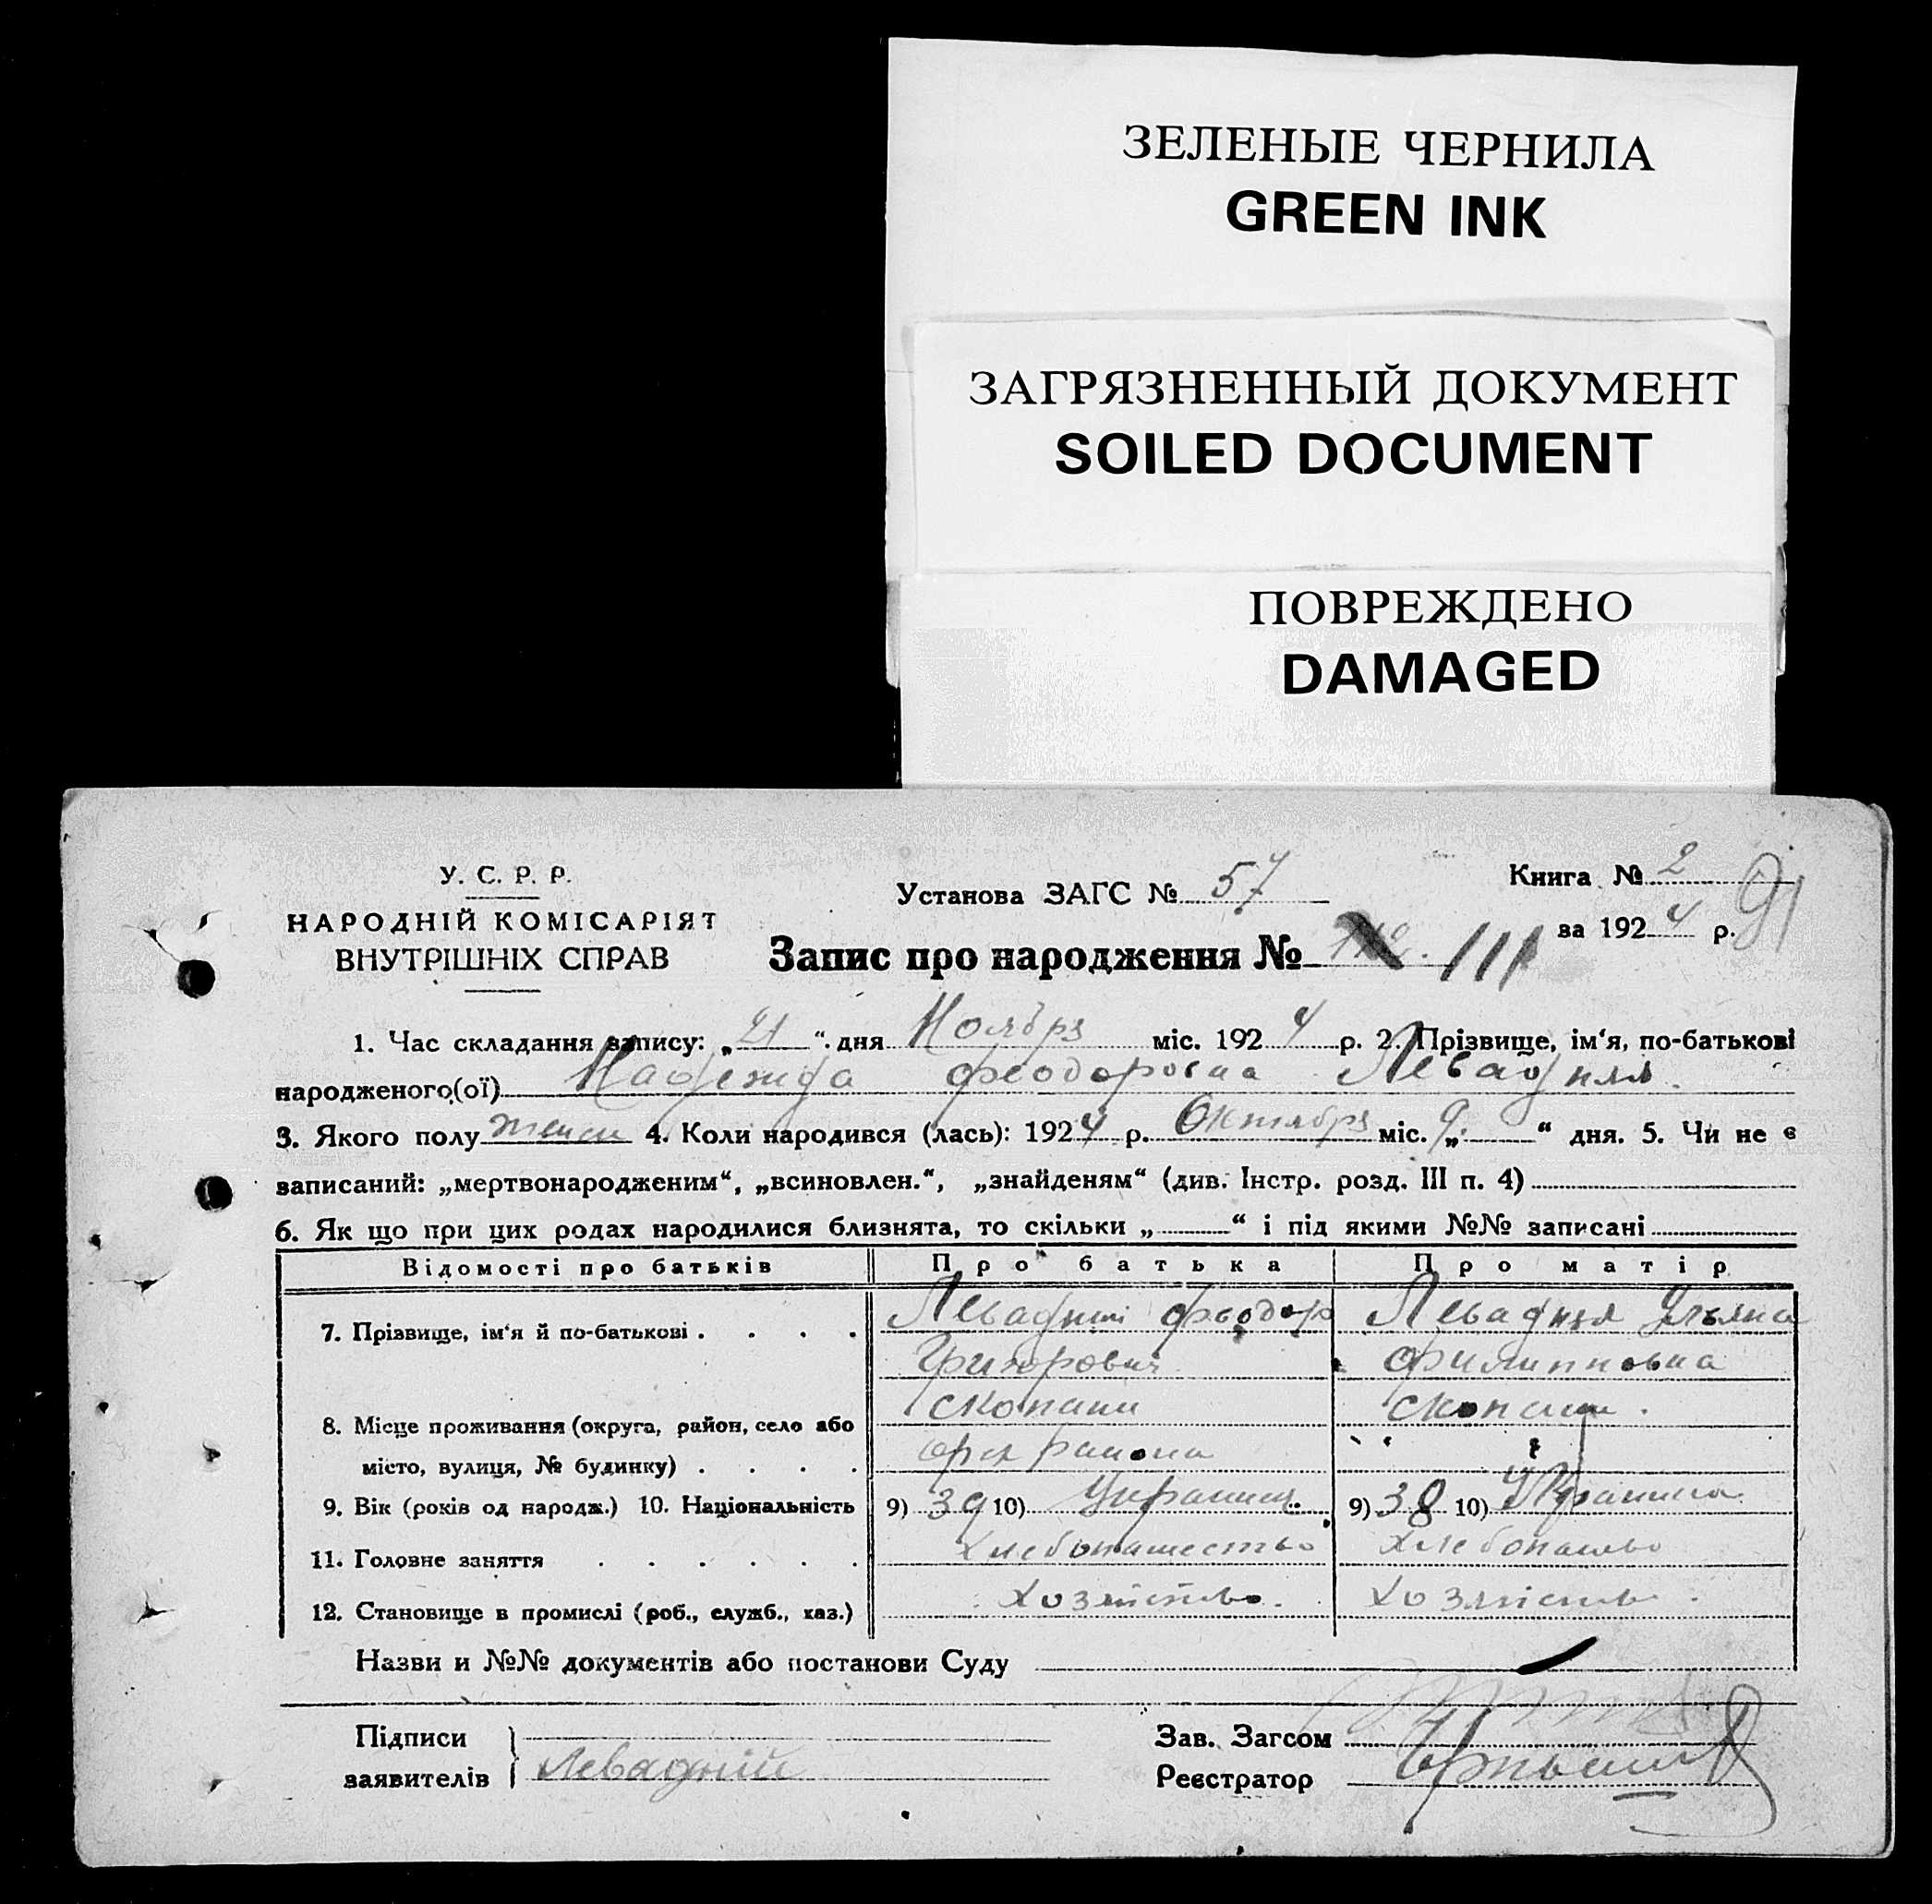 ЗЕЛЕНЫЕ ЧЕРНИЛА
GREEN INK
ЗАГРЯЗНЕННЫЙ ДОКУМЕНТ
SOILED DOCUMENT
ПОВРЕЖДЕНО
DAMAGED
У. С. Р. Р.
НАРОДНІЙ КОМІСАРІЯТ
ВНУТРІШНІХ СПРАВ
Установа ЗАГС № 57
Книга № 2
за 1924 р.
91
Запис про народження № 111
1. Час складання запису: „21“ дня Ноября міс. 1924 р. 2. Прізвище, ім‘я, по-батькові
народженого(ої) Надежда Феодоровна Левадняя.
3. Якого полу женск 4. Коли народився (лась): 1924 р. Октября міс. „9.“ дня. 5. Чи не є
записаний: „мертвонародженим“, „всиновлен.“, „знайденям“ (див. Інстр. розд. III п. 4)
6. Як що при цих родах народилися близнята, то скільки „ “ і під якими №№ записані
Відомості про батьків Про батька Про матір
7. Прізвище, ім‘я й по-батькові . . . . Левадний Феодор Левадняя Ульяна
Григорович Филипповна
Скопани Скопани.
8. Місце проживання (округа, район, село або
місто, вулиця, № будинку) . . . . района
9. Вік (років од народж.) 10. Національність 9) 39 10) Украинец. 9) 38 10) Украинка
11. Головне заняття . . . . . . Хлебопашество
12. Становище в промислі (роб., служб., хаз.) Хозяйство. Хозяйство.
Назви и №№ документів або постанови Суду
Підписи
заявителів Левадній
Зав. Загсом
Реєстратор